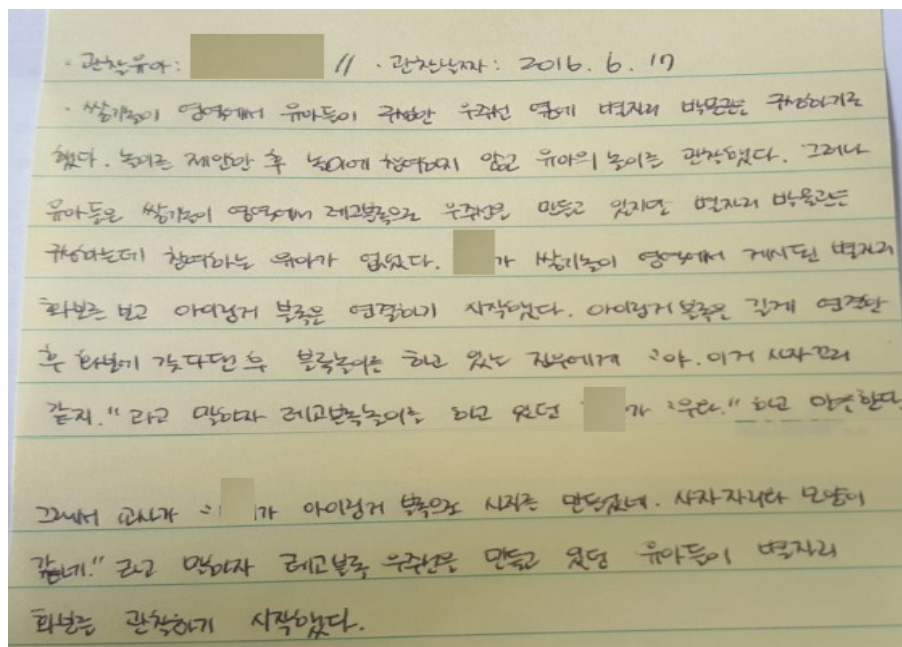 · 관찰유아: // · 관찰날짜: 2016. 6. 17
· 쌓기놀이 영역에서 유아들이 구성한 우주선 옆에 별자리 박물관을 구성하기로
했다. 놀이를 제안한 후 놀이에 참여하지 않고 유아의 놀이를 관찰했다. 그러나
유아들은 쌓기놀이 영역에서 레고블록으로 우주선을 만들고 있지만 별자리 박물관을
구성하는데 참여하는 유아가 없었다. 가 쌓기놀이 영역에서 게시된 별자리
화보를 보고 아이링거 블록을 연결하기 시작했다. 아이링거 블록을 길게 연결한
후 화보에 갖다댄 후 블록놀이를 하고 있는 친구에게 "야. 이거 사자 꼬리
같지." 라고 말하자 레고블록놀이를 하고 있던 가 "우와." 하고 한다.
그래서 교사가 " 가 아이링거 블록으로 사자를 만들었네. 사자자리랑 모양이
같네." 라고 말하자 레고블록 우주선을 만들고 있던 유아들이 별자리
화보를 관찰하기 시작했다.